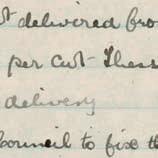 delivered fro
per cwt
delivery
Council to fix th